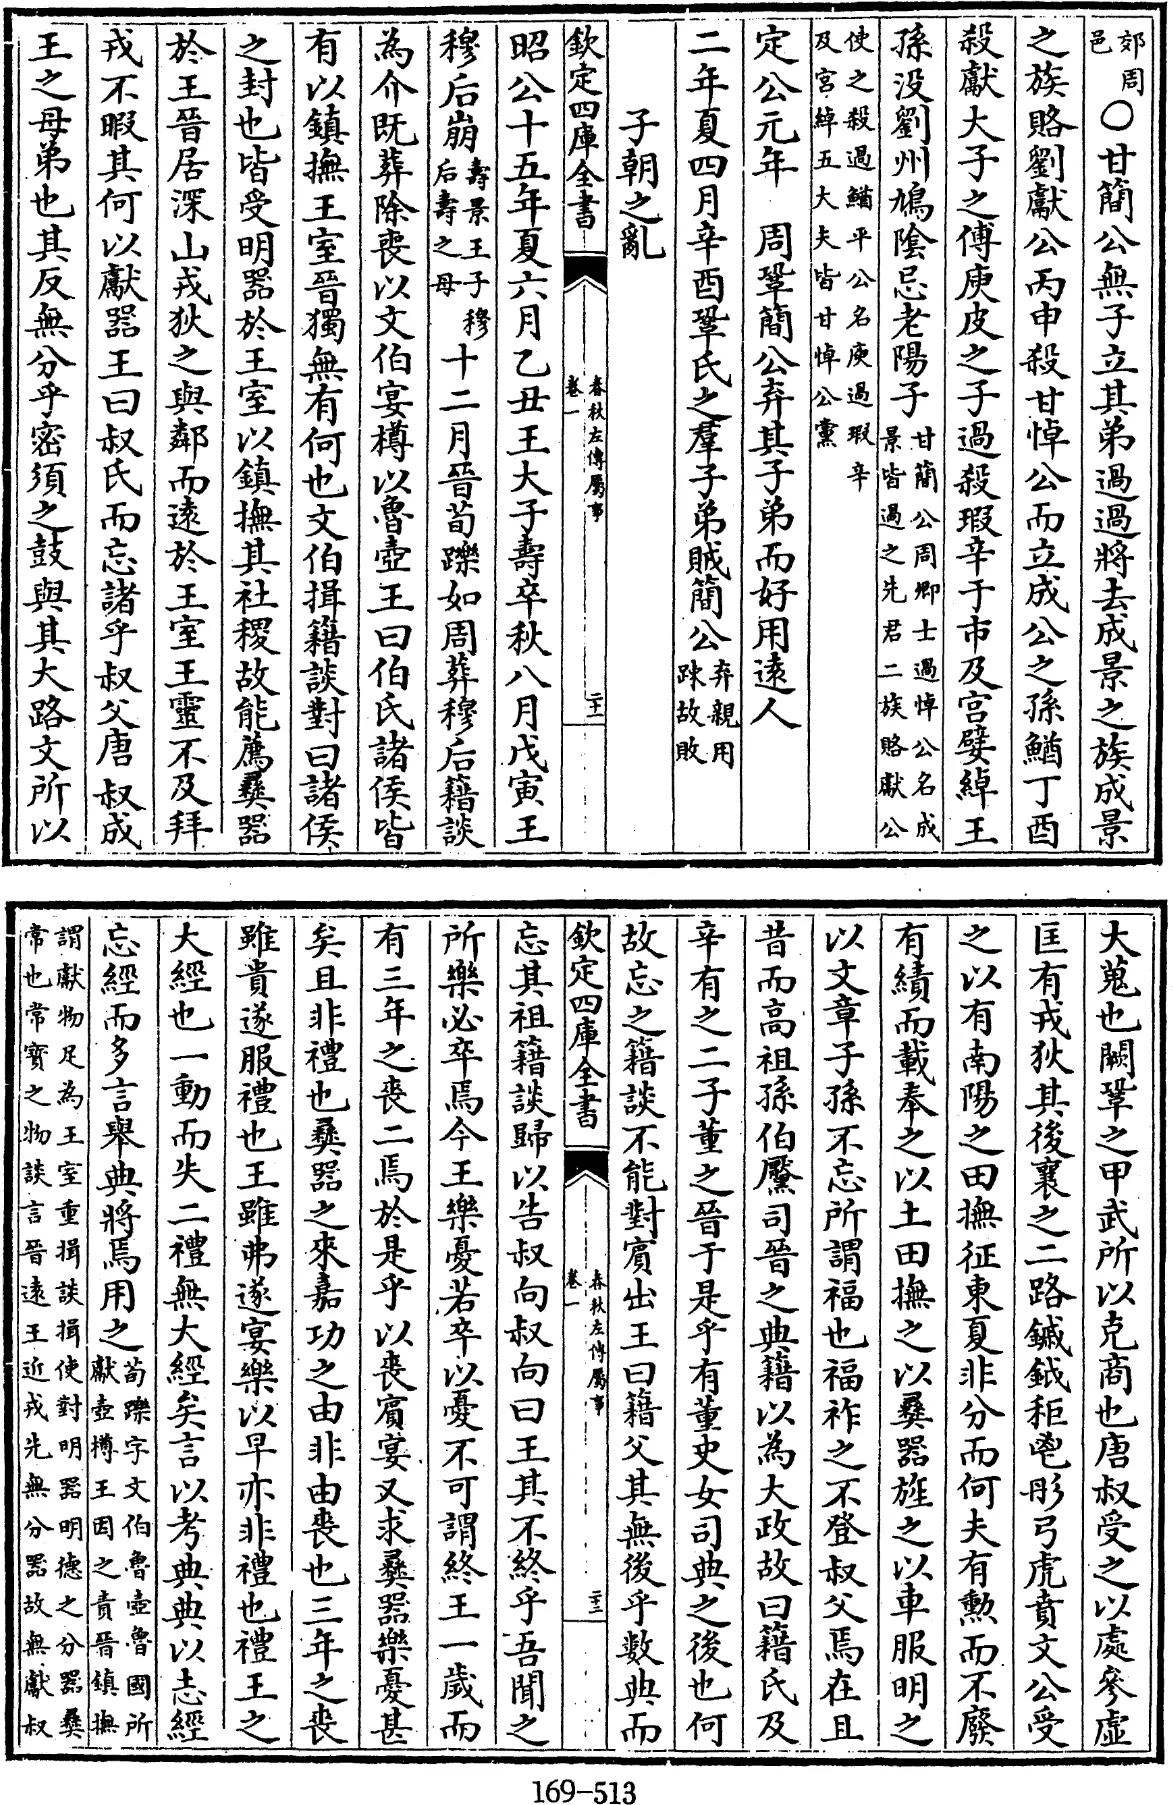 郊周
邑
○甘簡公無子立其弟過過將去成景之族成景
之族賂劉獻公丙申殺甘悼公而立成公之孫鰌丁酉
殺獻大子之傅庾皮之子過殺瑕辛于市及宫嬖綽王
孫没劉州鳩陰忌老陽子
甘簡公周卿士過悼公名成
景皆過之先君二族賂獻公
使之殺過鰌平公名庾過瑕辛
及宫綽五大夫皆甘悼公黨
定公元年 周鞏簡公弃其子弟而好用逺人
二年夏四月辛酉鞏氏之羣子弟賊簡公
弃親用
踈故敗
子朝之亂
欽定四庫全書
春秋左傳屬事
卷一
二十一
昭公十五年夏六月乙丑王大子壽卒秋八月戊寅王
穆后崩
壽景王子穆
后壽之母
十二月晉荀躒如周葬穆后籍談
為介既葬除喪以文伯宴樽以魯壺王曰伯氏諸侯皆
有以鎮撫王室晉獨無有何也文伯揖籍談對曰諸侯
之封也皆受明器於王室以鎮撫其社稷故能薦彝器
於王晉居深山戎狄之與鄰而逺於王室王靈不及拜
戎不暇其何以獻器王曰叔氏而忘諸乎叔父唐叔成
王之母弟也其反無分乎密須之鼓與其大路文所以
大蒐也闕鞏之甲武所以克商也唐叔受之以處參虛
匡有戎狄其後襄之二路鏚鉞秬鬯彤弓虎賁文公受
之以有南陽之田撫征東夏非分而何夫有勲而不廢
有績而載奉之以土田撫之以彝器旌之以車服明之
以文章子孫不忘所謂福也福祚之不登叔父焉在且
昔而高祖孫伯黶司晉之典籍以為大政故曰籍氏及
辛有之二子董之晉于是乎有董史女司典之後也何
故忘之籍談不能對賓出王曰籍父其無後乎數典而
欽定四庫全書
春秋左傳屬事
卷一
二十二
忘其祖籍談歸以告叔向叔向曰王其不終乎吾聞之
所樂必卒焉今王樂憂若卒以憂不可謂終王一歲而
有三年之喪二焉於是乎以喪賓宴又求彝器樂憂甚
矣且非禮也彝器之來嘉功之由非由喪也三年之喪
雖貴遂服禮也王雖弗遂宴樂以早亦非禮也禮王之
大經也一動而失二禮無大經矣言以考典典以志經
忘經而多言舉典將焉用之
荀躒字文伯魯壺魯國所
獻壺樽王因之責晉鎮撫
謂獻物足為王室重揖談揖使對明器明德之分器彝
常也常寳之物談言晉逺王近戎先無分器故無獻叔
169-513